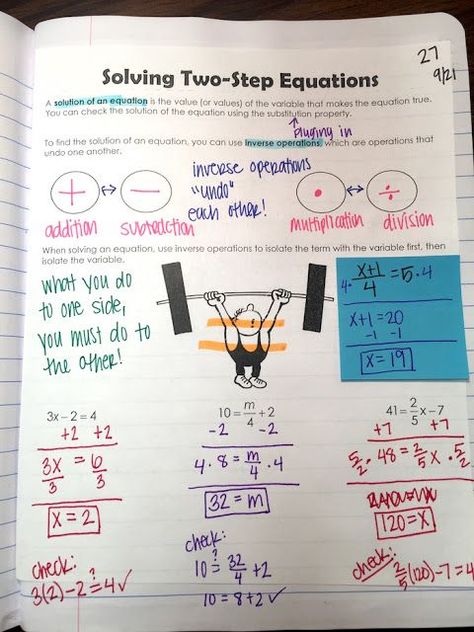 27
9/21
Solving Two-Step Equations
A solution of an equation is the value (or values) of the variable that makes the equation true.
You can check the solution of the equation using the substitution property.
pluging in
To find the solution of an equation, you can use inverse operations, which are operations that
undo one another.
+ ↔ −
addition subtraction
inverse operations
"undo"
each other!
• ↔ ÷
multiplication division
When solving an equation, use inverse operations to isolate the term with the variable first, then
isolate the variable.
what you do
to one side,
you must do to
the other!
4· x+1/4 = 5·4
x+1 = 20
-1 -1
x = 19
3x − 2 = 4
+2 +2
3x/3 = 6/3
x = 2
check:
3(2)−2 ≟ 4 ✓
10 = m/4 + 2
-2 -2
4·8 = m/4 ·4
32 = m
check:
10 ≟ 32/4 + 2
10 = 8+2 ✓
41 = 2/5 x − 7
+7 +7
5/2 · 48 = 2/5 x · 5/2
120 = x
check:
2/5(120)−7 = 4